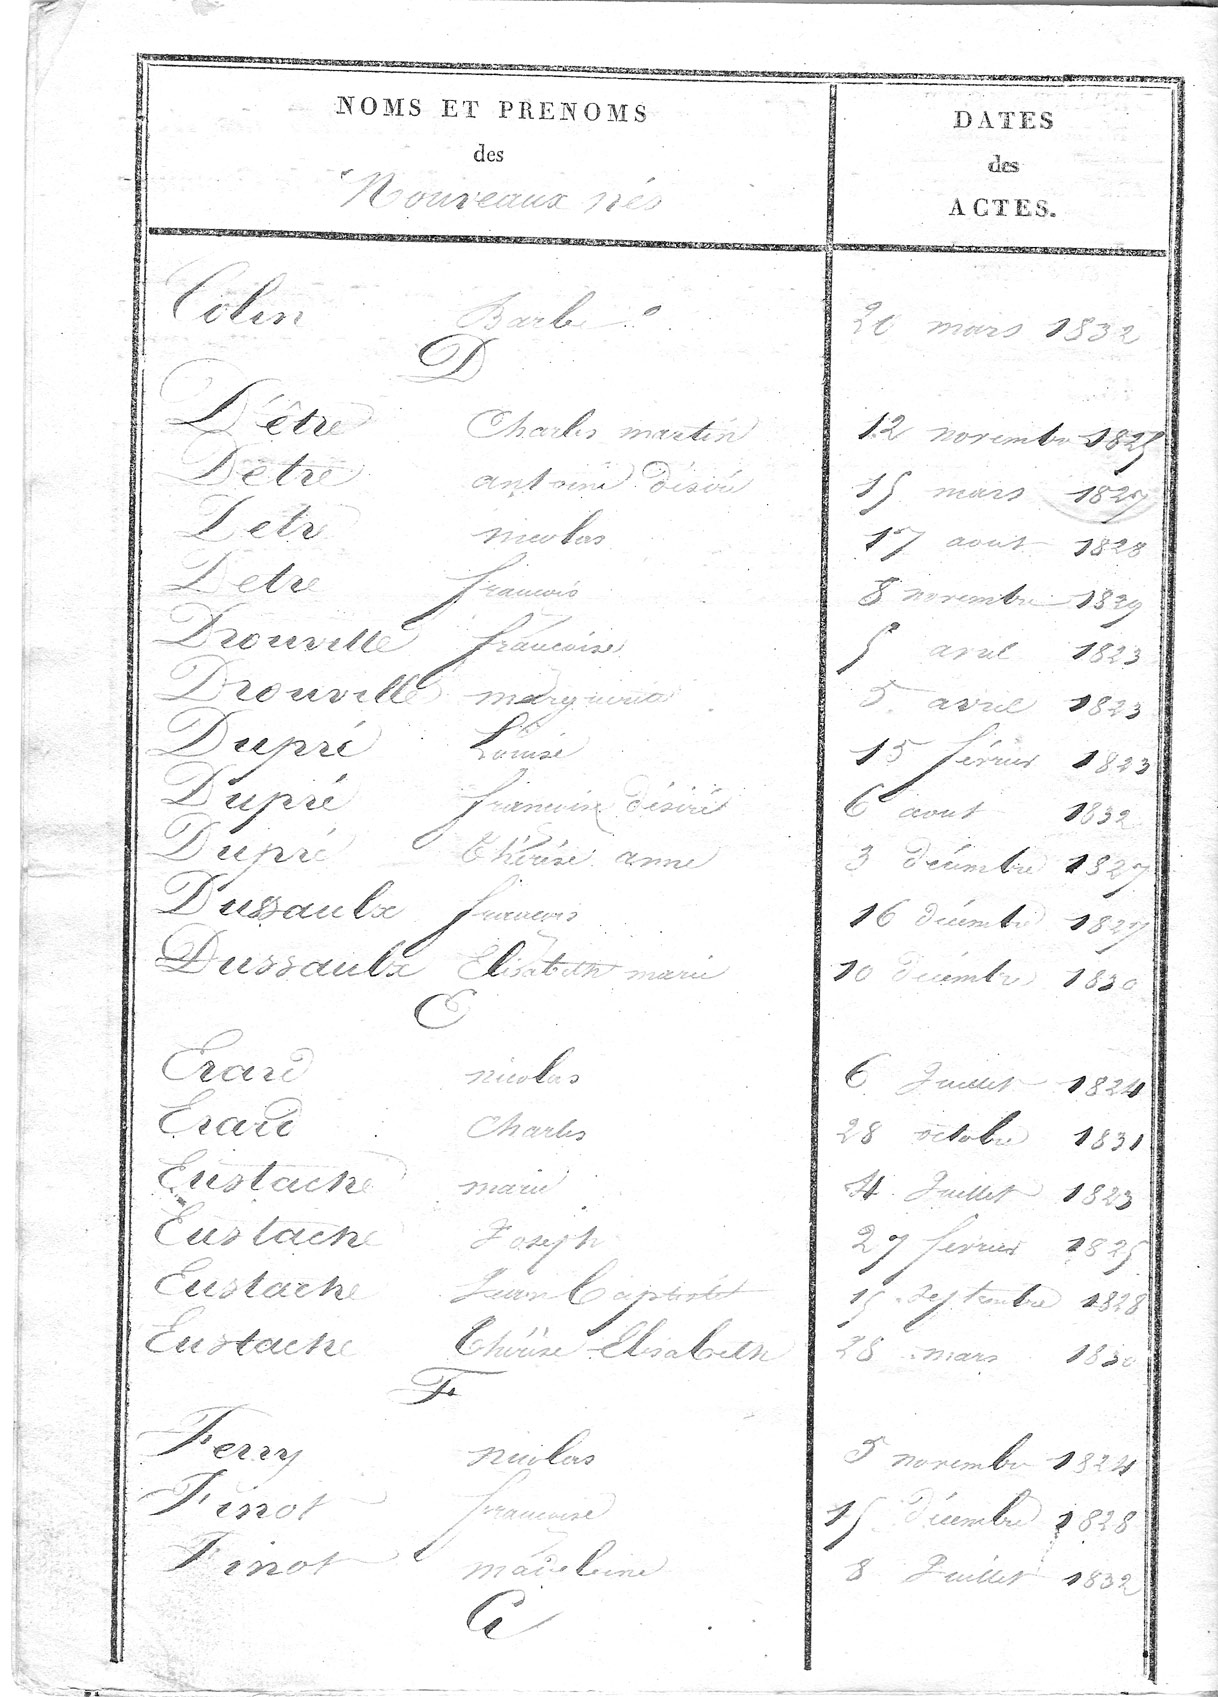 NOMS ET PRENOMS
des
Nouveaux nés
DATES
des
ACTES.
Colin Barbe 20 mars 1832
D
D'être Charles martin 12 novembre 1825
Detre antoine Désiré 15 mars 1827
Detr nicolas 17 aout 1828
Detre françois 8 novembre 1829
Drouville françoise 5 avril 1823
Drouville marguerite 5 avril 1823
Dupré Louise 15 février 1823
Dupré françoise désiré 6 aout 1832
Dupré thérèse anne 3 décembre 1827
Dussaulx françois 16 décembre 1827
Dussaulx Elisabeth marie 10 décembre 1830
E
Erard nicolas 6 Juillet 1824
Erard Charles 28 octobre 1831
Eustache marie 4 Juillet 1823
Eustache Joseph 27 février 1825
Eustache Jean Baptiste 15 septembre 1828
Eustache thérèse Elisabeth 28 mars 1830
F
Ferry nicolas 5 novembre 1824
Finot françoise 15 décembre 1828
Finot madeleine 8 Juillet 1832
G